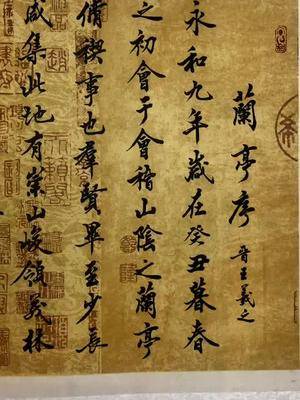 蘭亭序 晉王羲之
永和九年歲在癸丑暮春
之初會于會稽山陰之蘭亭
脩禊事也羣賢畢至少長
咸集此地有崇山峻領茂林